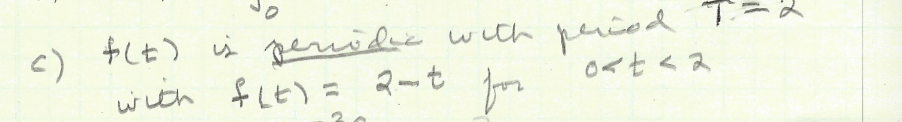 c) f(t) is periodic with period T = 2
with f(t) = 2-t for 0<t<2